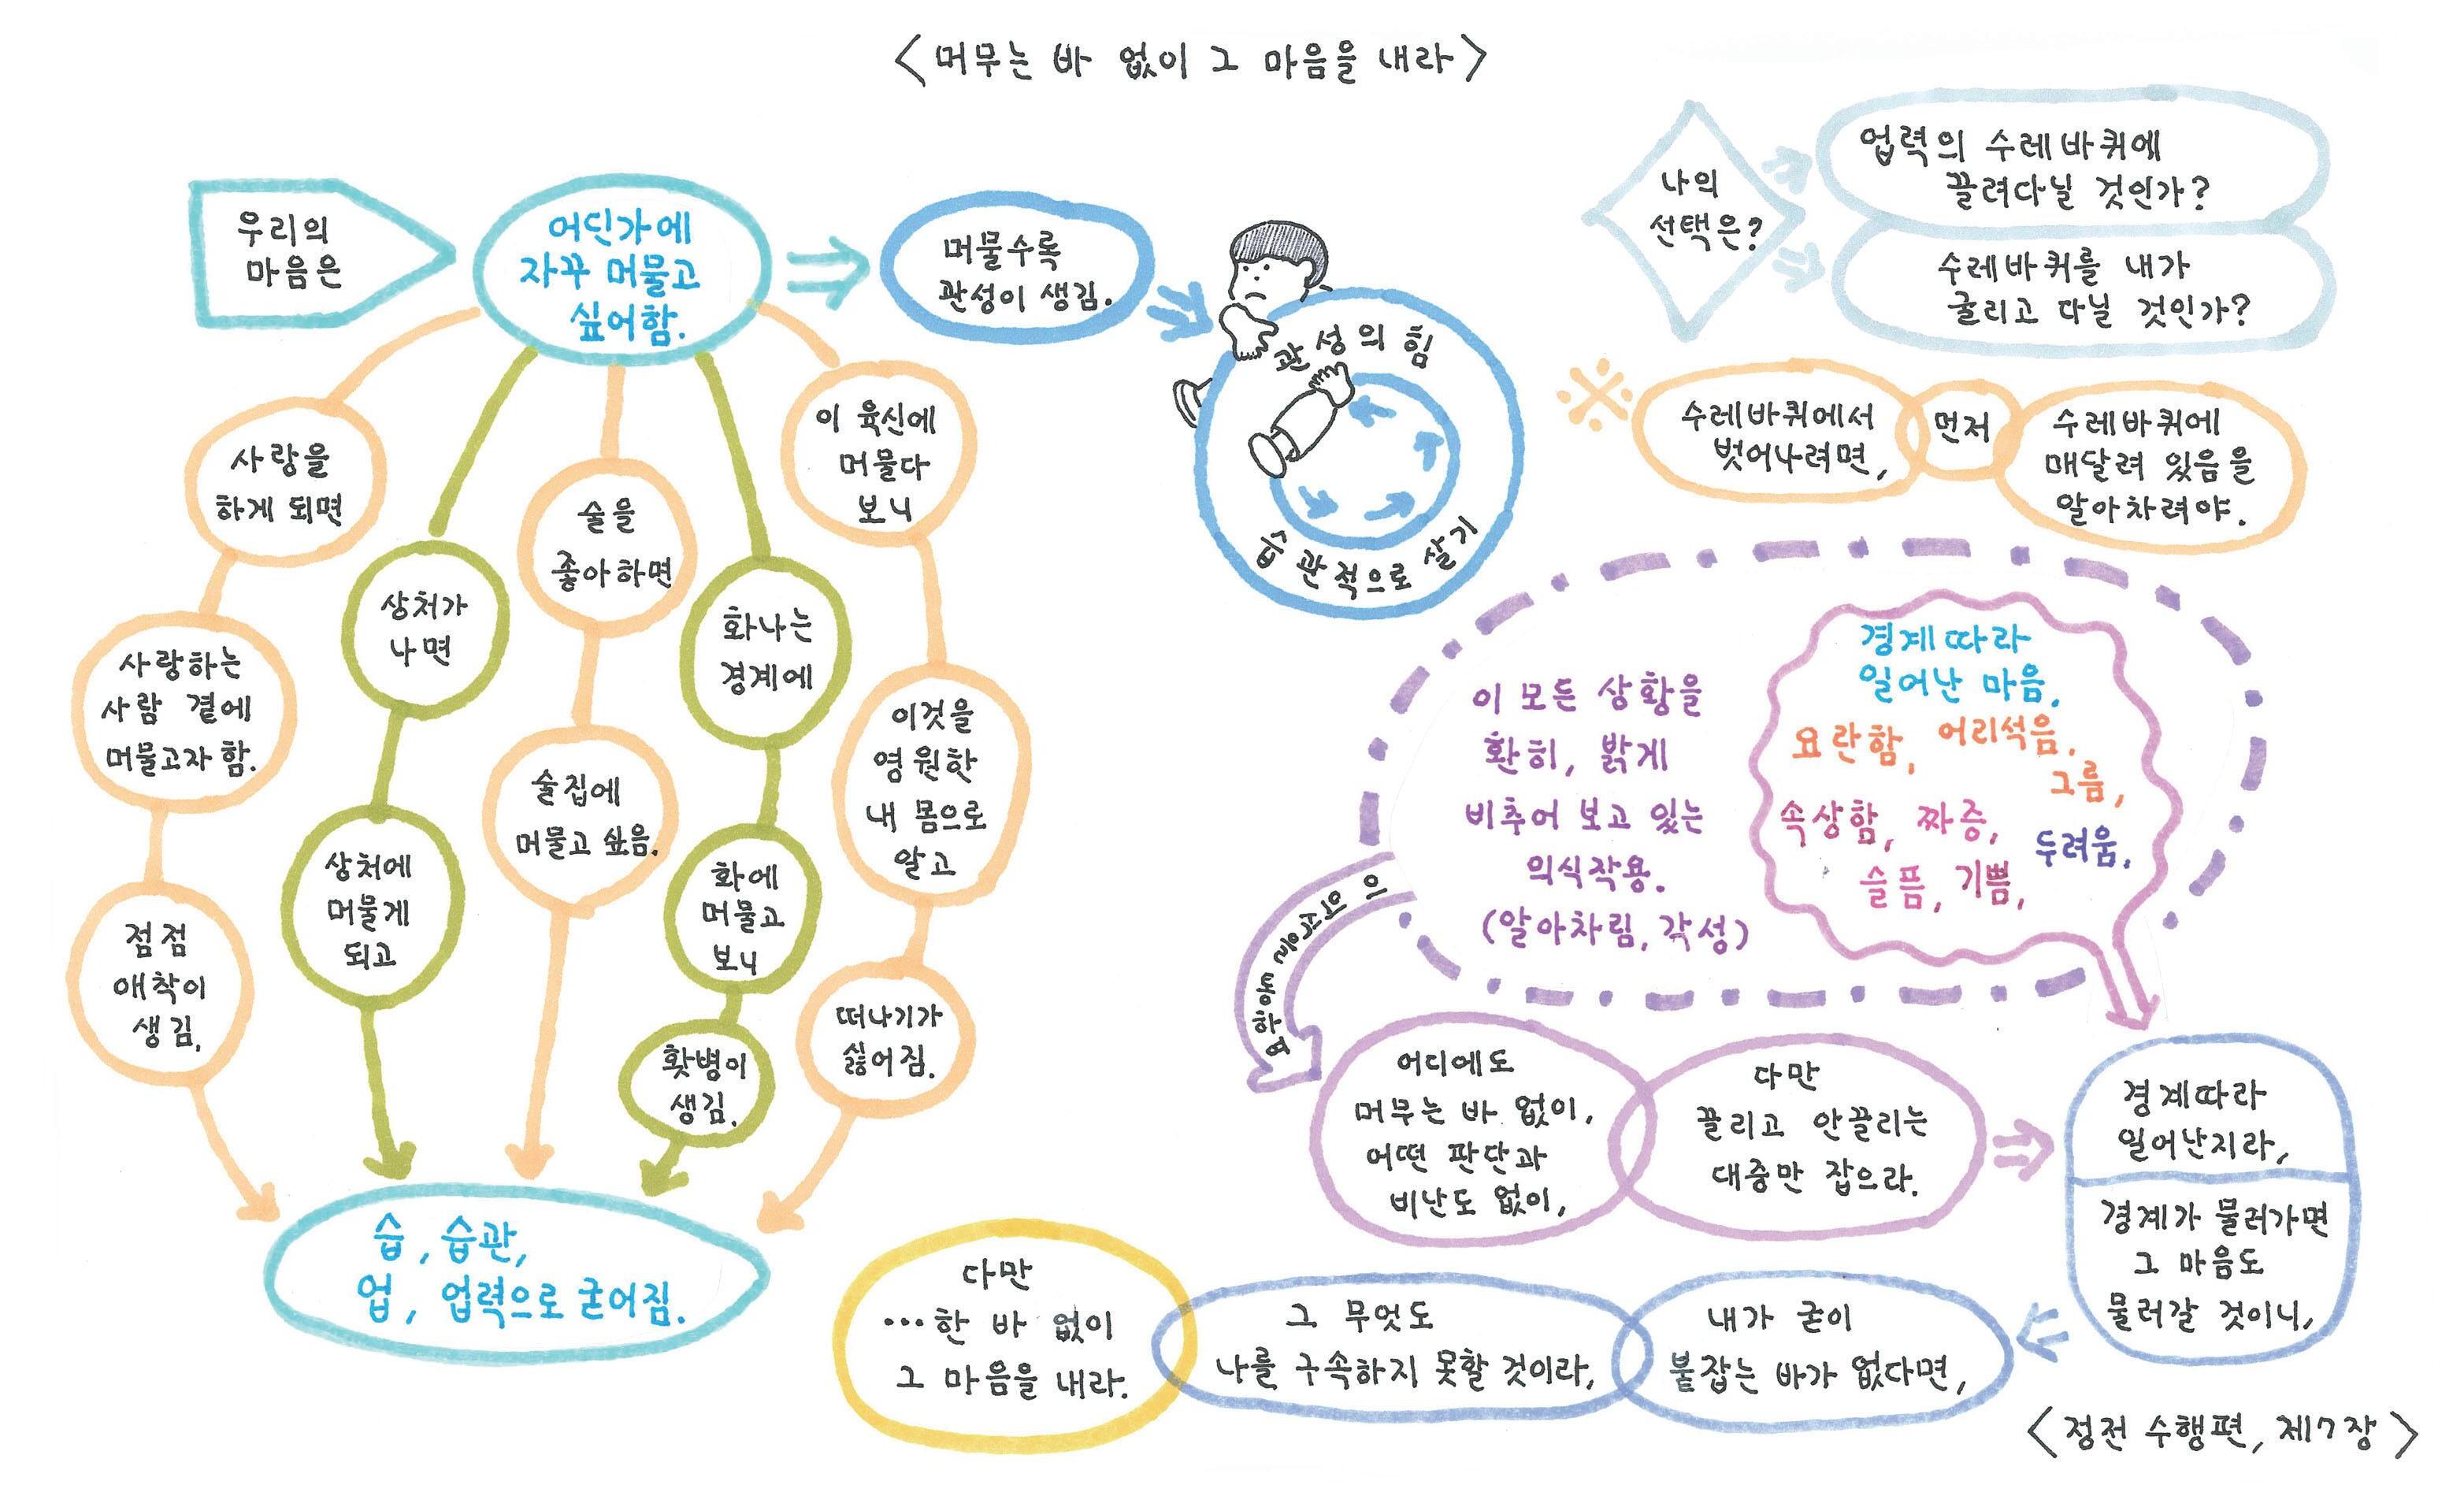 <머무는 바 없이 그 마음을 내라>
우리의
마음은
어딘가에
자꾸 머물고
싶어함.
머물수록
관성이 생김.
관성의 힘
습관적으로 살기
사랑을
하게 되면
사랑하는
사람 곁에
머물고자 함.
점점
애착이
생김.
상처가
나면
상처에
머물게
되고
술을
좋아하면
술집에
머물고 싶음.
화나는
경계에
화에
머물고
보니
홧병이
생김.
이 육신에
머물다
보니
이것을
영원한
내 몸으로
알고
떠나기가
싫어짐.
습, 습관,
업, 업력으로 굳어짐.
나의
선택은?
업력의 수레바퀴에
끌려다닐 것인가?
수레바퀴를 내가
굴리고 다닐 것인가?
※
수레바퀴에서
벗어나려면,
먼저
수레바퀴에
매달려 있음을
알아차려야.
이 모든 상황을
환히, 밝게
비추어 보고 있는
의식작용.
(알아차림, 각성)
경계따라
일어난 마음.
요란함, 어리석음.
그름,
속상함, 짜증,
두려움.
슬픔, 기쁨,
어디에도
머무는 바 없이,
어떤 판단과
비난도 없이,
다만
끌리고 안끌리는
대중만 잡으라.
경계따라
일어난지라,
경계가 물러가면
그 마음도
물러갈 것이니,
내가 굳이
붙잡는 바가 없다면,
그 무엇도
나를 구속하지 못할 것이라,
다만
…한 바 없이
그 마음을 내라.
<정전 수행편, 제7장>